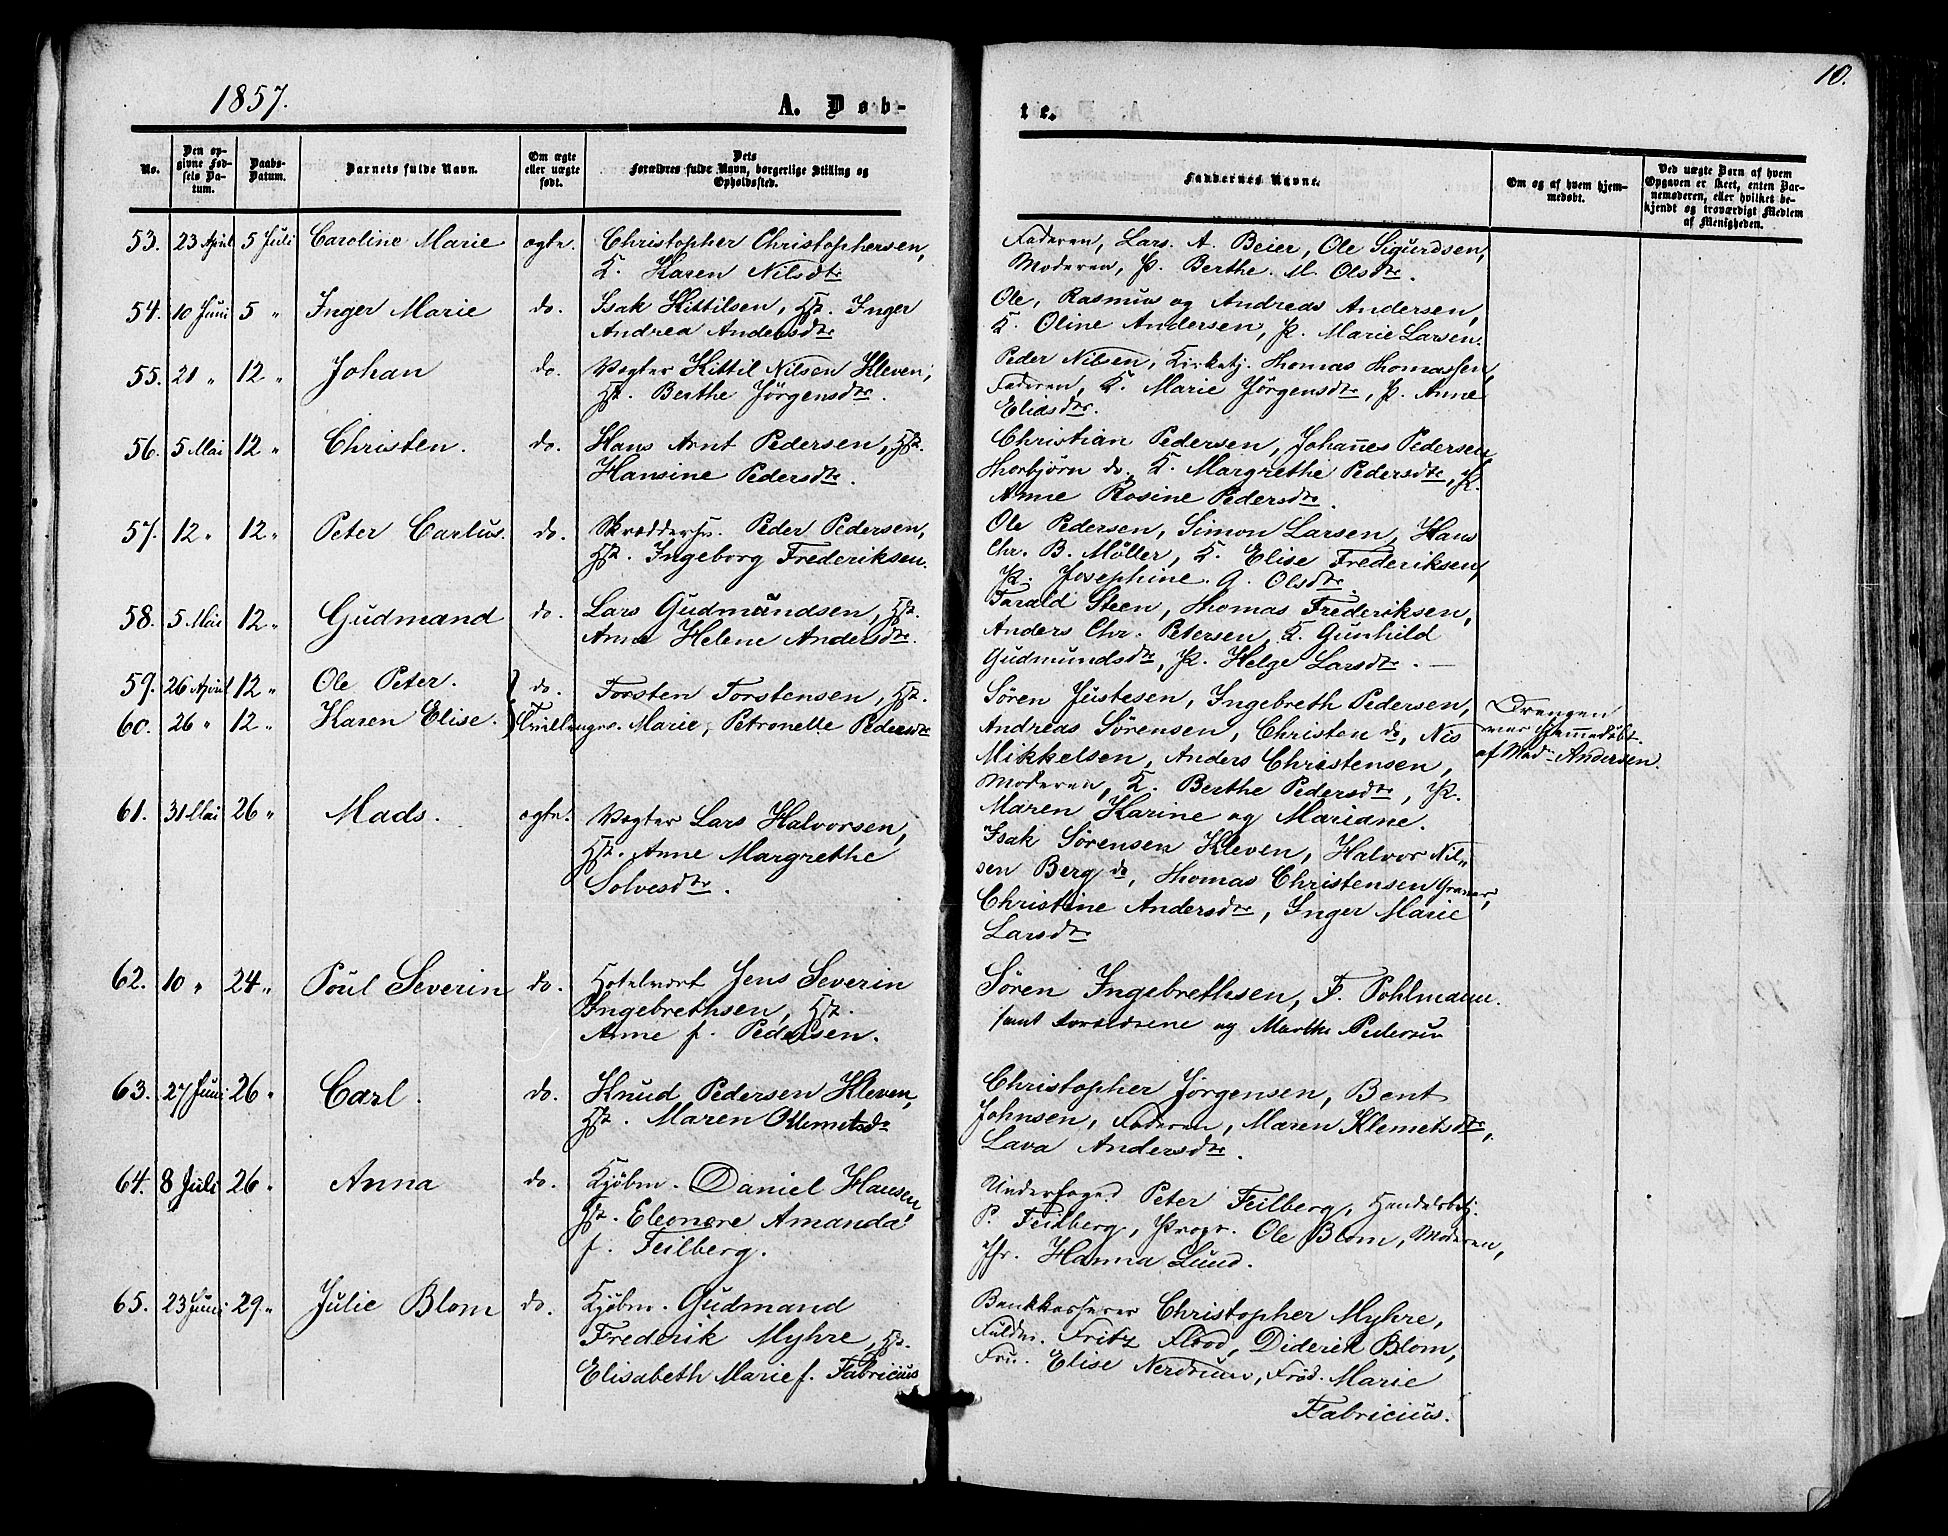 1857.
A. Døb-
te.
10.
No.
Den opgivne Fødsels Datum.
Daabs-Datum.
Barnets fulde Navn.
Om ægte eller uægte født.
Dets Forældres fulde Navn, borgerlige Stilling og Opholdssted.
Faddernes Navne.
Om og af hvem hjemmedøbt.
Ved uægte Børn af hvem Opgaven er skeet, enten Barnemoderen, eller hvilket bekjendt og troværdigt Medlem af Menigheden.
53. 23 April 5 Juli Caroline Marie ægte. Christopher Christophersen,
K. Karen Nilsdtr
Faderen, Lars A. Beier, Ole Sigurdsen,
Moderen, P. Berthe M. Olsdtr.
54. 10 Juni 5 " Inger Marie do. Isak Kittilsen, Hst. Inger
Andrea Andersdtr
Ole, Rasmus og Andreas Andersen,
K. Oline Andersen, P. Marie Larsen.
55. 21 " 12 " Johan do. Vægter Kittil Nilsen Kleven,
Hst. Berthe Jörgensdtr.
Peder Nilsen, Kirketj. Thomas Thomassen,
Faderen, K. Marie Jörgensdtr, P. Anne
Eliasdtr.
56. 5 Mai 12 " Christen. do. Hans Arnt Pedersen, Hst.
Hansine Pedersdtr.
Christian Pedersen, Johannes Pedersen
Thorbjörn do. K. Margrethe Pedersdtr, P.
Anne Rosine Pedersdtr.
57. 12 " 12 " Peter Carlus. do. Skræddersv. Peder Pedersen,
Hst. Ingeborg Frederiksen.
Ole Pedersen, Simon Larsen, Hans
Chr. B. Möller, K. Elise Frederiksen,
P. Josephine G. Olsdtr.
58. 5 Mai 12 " Gudmand do. Lars Gudmundsen, Hst.
Anne Helene Andersdtr.
Tarald Steen, Thomas Frederiksen,
Anders Chr. Petersen, K. Gunhild
Gudmundsdtr, P. Helge Larsdtr. —
59. 26 April 12 " Ole Peter. } do. Torsten Torstensen, Hst.
60. 26 " 12 " Karen Elise. } Tvillinger. Marie Petronelle Pedersdtr
Sören Justesen, Ingebreth Pedersen,
Andreas Sörensen, Christen do, Nis
Mikkelsen, Anders Christensen,
Moderen, K. Berthe Pedersdtr, P.
Maren Karine og Mariane.
Drengen
var hjemmedöbt
af Mad. Andersen.
61. 31 Mai 26 " Mads. ægte. Vægter Lars Halvorsen,
Hst. Anne Margrethe
Solvesdtr.
Isak Sörensen Kleven, Halvor Nil-
sen Berg do, Thomas Christensen Graver,
Christine Andersdtr, Inger Marie
Larsdtr
62. 10 " 24 " Poul Severin do. Hotelvært Jens Severin
Ingebrethsen, Hst.
Anne f. Pedersen.
Sören Ingebrethsen, F. Pohlmann.
samt Forældrene og Marthe Pedersen
63. 27 Juni 26 " Carl. do. Knud Pedersen Kleven,
Hst. Maren Klemetsd
Christopher Jörgensen, Bent
Johnsen, Faderen, Maren Klemetsdtr,
Lava Andersdtr.
64. 8 Juli 26 " Anna do. Kjöbm. Daniel Hansen,
Hst. Eleonore Amanda
f. Feilberg.
Underfoged Peter Feilberg, Handelsbetj.
P. Feilberg, Propr. Ole Blom, Moderen,
Jfr. Hanna Lund.
65. 23 Juni 29 " Julie Blom do. Kjöbm. Gudmand
Frederik Myhre, Hst.
Elisabeth Marie f. Fabricius
Bankkasserer Christopher Myhre,
Fuldm. Fritz Flood, Diderik Blom,
Fru Elise Nerdrum, Fröd. Marie
Fabricius.